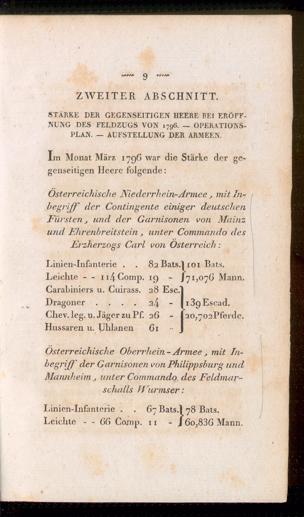 9
ZWEITER ABSCHNITT.
STÄRKE DER GEGENSEITIGEN HEERE BEI ERÖFF-
NUNG DES FELDZUGS VON 1796. — OPERATIONS-
PLAN. — AUFSTELLUNG DER ARMEEN.
Im Monat März 1796 war die Stärke der ge-
genseitigen Heere folgende:
Österreichische Niederrhein-Armee, mit In-
begriff der Contingente einiger deutschen
Fürsten, und der Garnisonen von Mainz
und Ehrenbreitstein, unter Commando des
Erzherzogs Carl von Österreich:
Linien-Infanterie . . 82 Bats. } 101 Bats.
Leichte - - 114 Comp. 19 - } 71,076 Mann.
Carabiniers u. Cuirass. 28 Esc.
Dragoner . . . . 24 - } 139 Escad.
Chev. leg. u. Jäger zu Pf. 26 - } 20,702 Pferde.
Hussaren u. Uhlanen 61 -
Österreichische Oberrhein-Armee, mit In-
begriff der Garnisonen von Philippsburg und
Mannheim, unter Commando des Feldmar-
schalls Wurmser:
Linien-Infanterie . . 67 Bats. } 78 Bats.
Leichte - - 66 Comp. 11 - } 60,836 Mann.